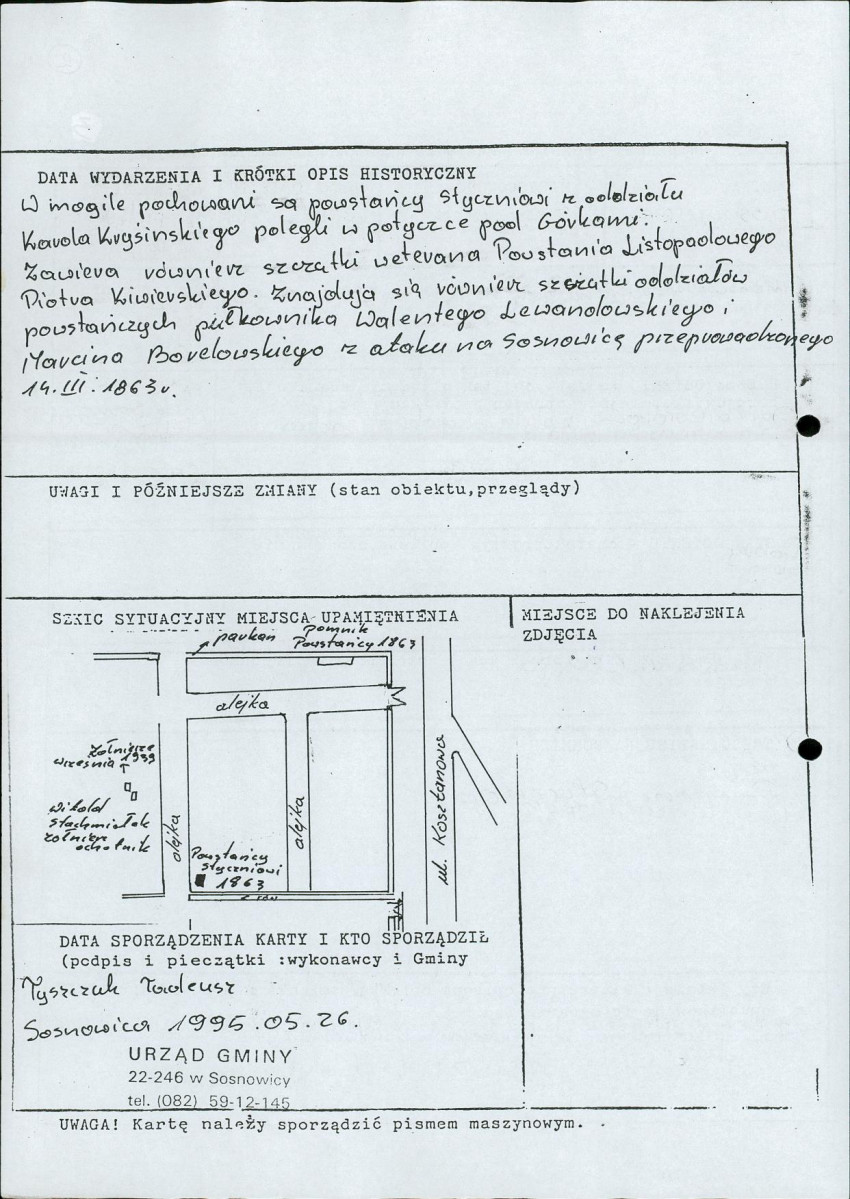 DATA WYDARZENIA I KRÓTKI OPIS HISTORYCZNY
W mogile pochowani są powstańcy styczniowi z oddziału
Karola Kryśinskiego polegli w potyczce pod Górkami.
Zawiera równierz szczątki weterana Powstania Listopadowego
Piotra Kiwerskiego. Znajdują się równierz szczątki oddziałów
powstańczych pułkownika Walentego Lewandowskiego i
Marcina Borelowskiego z ataku na Sosnowicę przeprowadzonego
14.III.1863r.
UWAGI I PÓŹNIEJSZE ZMIANY (stan obiektu,przeglądy)
SZKIC SYTUACYJNY MIEJSCA UPAMIĘTNIENIA
MIEJSCE DO NAKLEJENIA
ZDJĘCIA
parkan
pomnik
Powstańcy 1863
alejka
żołnierze
września 1939
Witold
Stachmiałek
żołnierz
ochotnik
alejka
alejka
Powstańcy
Styczniowi
1863
ul. Kasztanowa
DATA SPORZĄDZENIA KARTY I KTO SPORZĄDZIŁ
(podpis i pieczątki :wykonawcy i Gminy
Tyszczuk Tadeusz
Sosnowica 1995.05.26.
URZĄD GMINY
22-246 w Sosnowicy
tel. (082) 59-12-145
UWAGA! Kartę należy sporządzić pismem maszynowym.